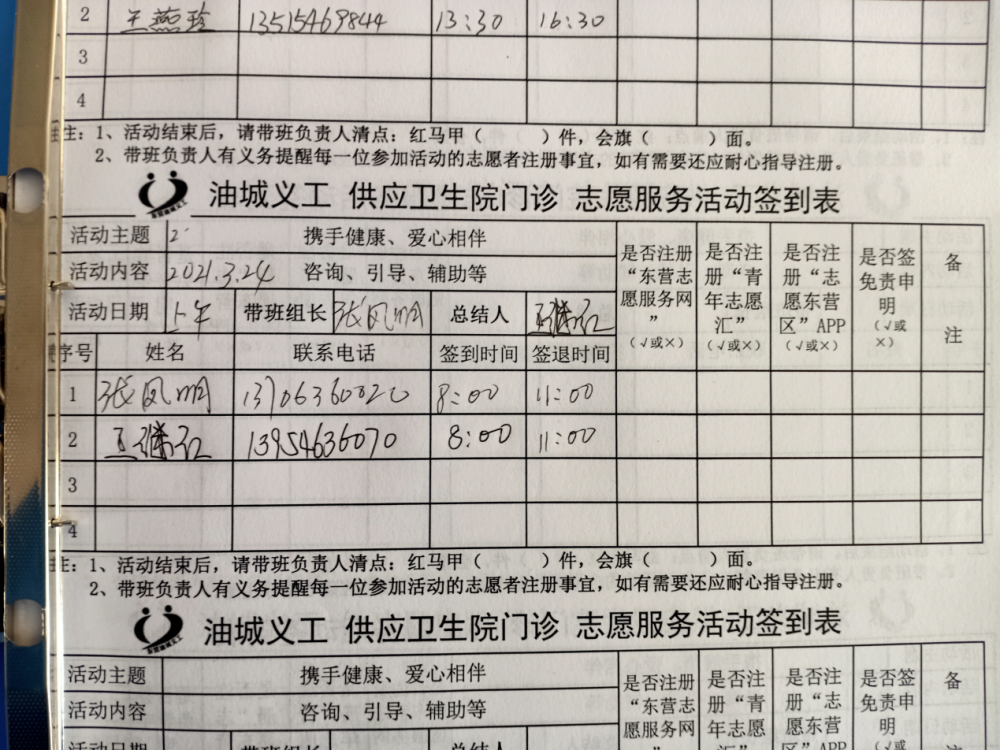 2 王燕玲 13515469844 13:30 16:30
3
4
注：1、活动结束后，请带班负责人清点：红马甲（ ）件，会旗（ ）面。
2、带班负责人有义务提醒每一位参加活动的志愿者注册事宜，如有需要还应耐心指导注册。
油城义工 供应卫生院门诊 志愿服务活动签到表
活动主题 携手健康、爱心相伴
活动内容 2021.3.24 咨询、引导、辅助等
活动日期 上午 带班组长 张凤明 总结人
是否注册“东营志愿服务网”（√或×）
是否注册“青年志愿汇”（√或×）
是否注册“志愿东营区”APP（√或×）
是否签免责申明（√或×）
备注
序号 姓名 联系电话 签到时间 签退时间
1 张凤明 13706360020 8:00 11:00
2 13954636070 8:00 11:00
3
4
注：1、活动结束后，请带班负责人清点：红马甲（ ）件，会旗（ ）面。
2、带班负责人有义务提醒每一位参加活动的志愿者注册事宜，如有需要还应耐心指导注册。
油城义工 供应卫生院门诊 志愿服务活动签到表
活动主题 携手健康、爱心相伴
活动内容 咨询、引导、辅助等
活动日期 带班组长 总结人
是否注册“东营志愿服务网”
是否注册“青年志愿汇”
是否注册“志愿东营区”APP
是否签免责申明（√或
备注